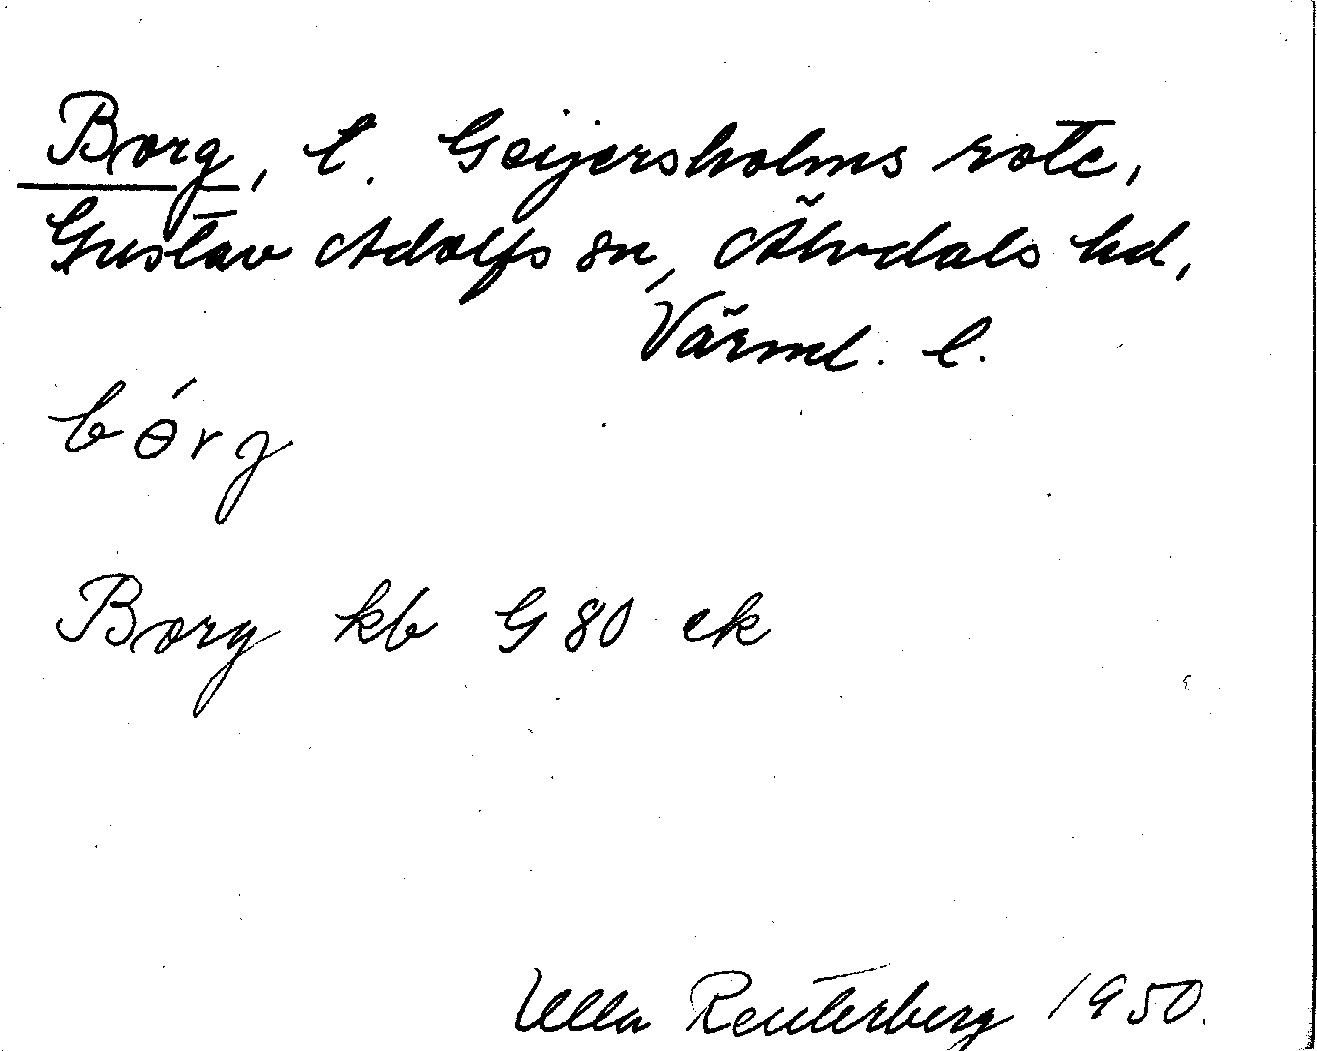 Borg, t. Geijersholms rote,
Gustav Adolfs sn, Älvdals hd,
Värml. l.
bɵ́rg
Borg kb G 80 ek
Ulla Reuterberg 1950.